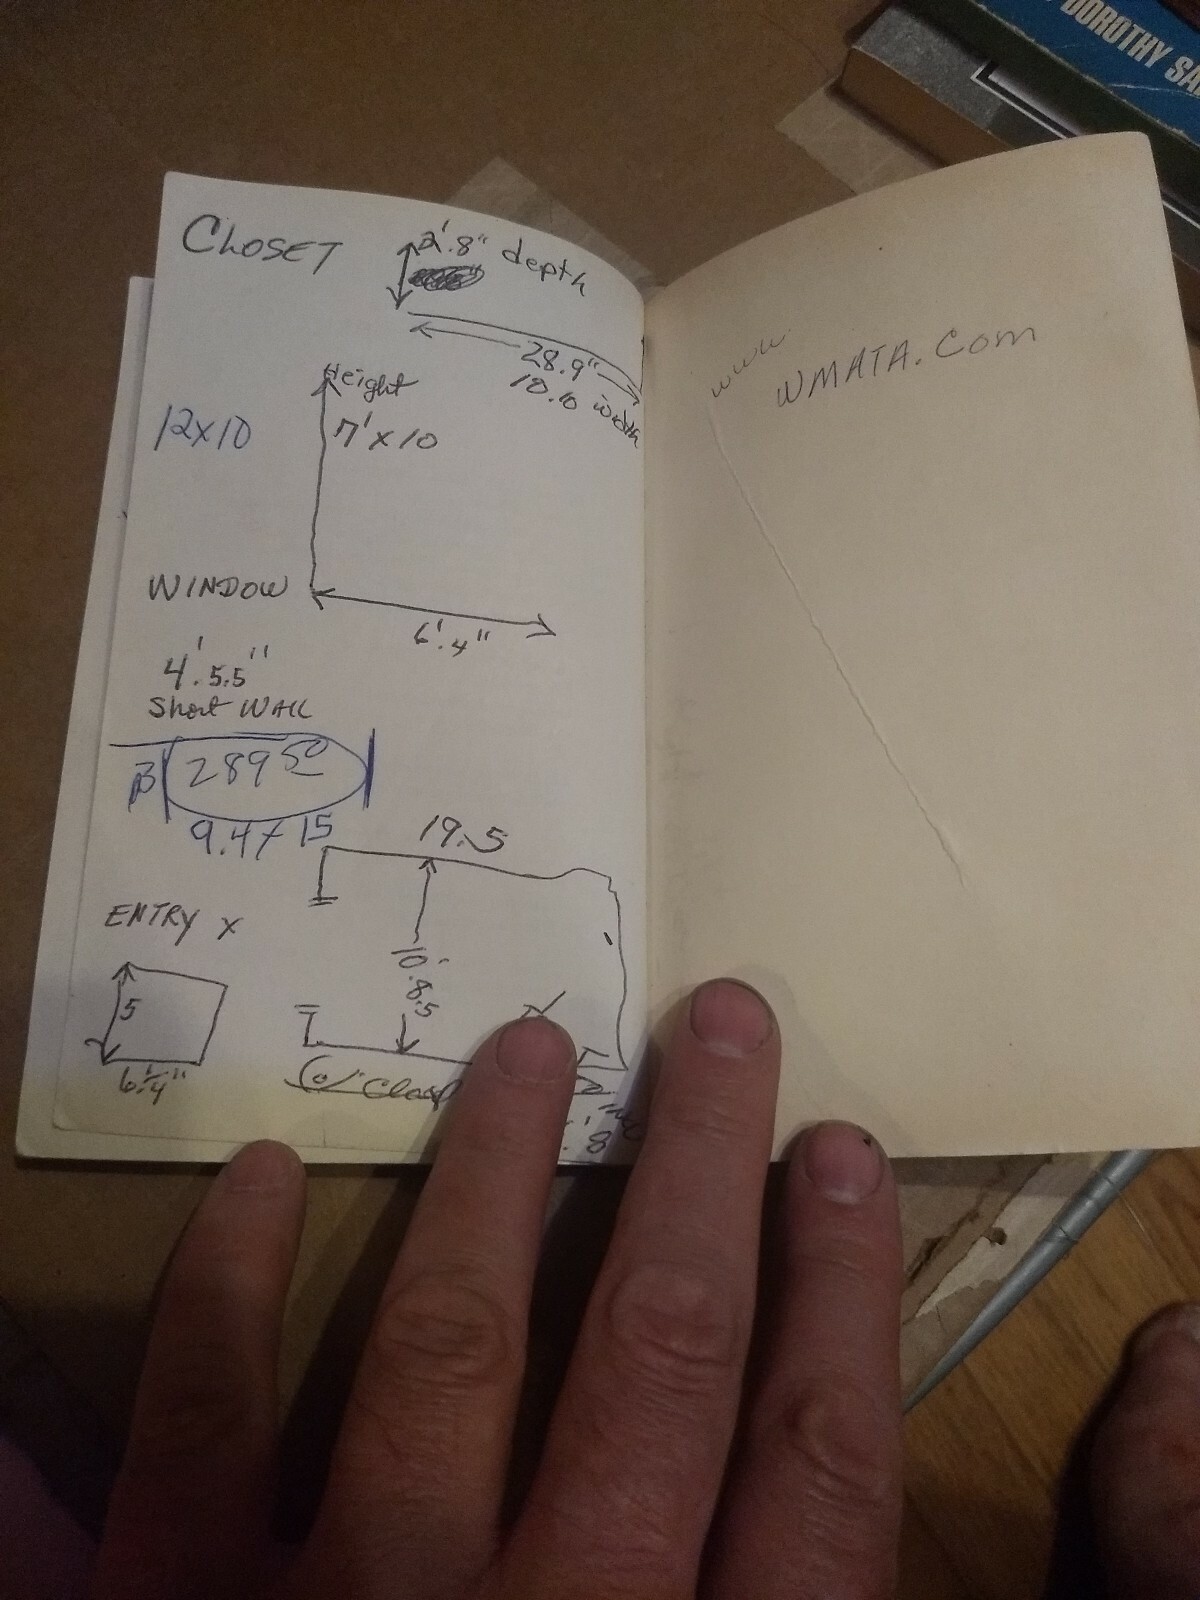 CLOSET
2'.8" depth
28.9"
10.10 width
Height
7' x 10
12x10
WINDOW
6'.4"
4'.5.5"
Short WALL
289 50
9.4 x 15
19.5
ENTRY x
10'
8.5
5
6 1/4"
Closet
'8
www
WMATA.Com
DOROTHY